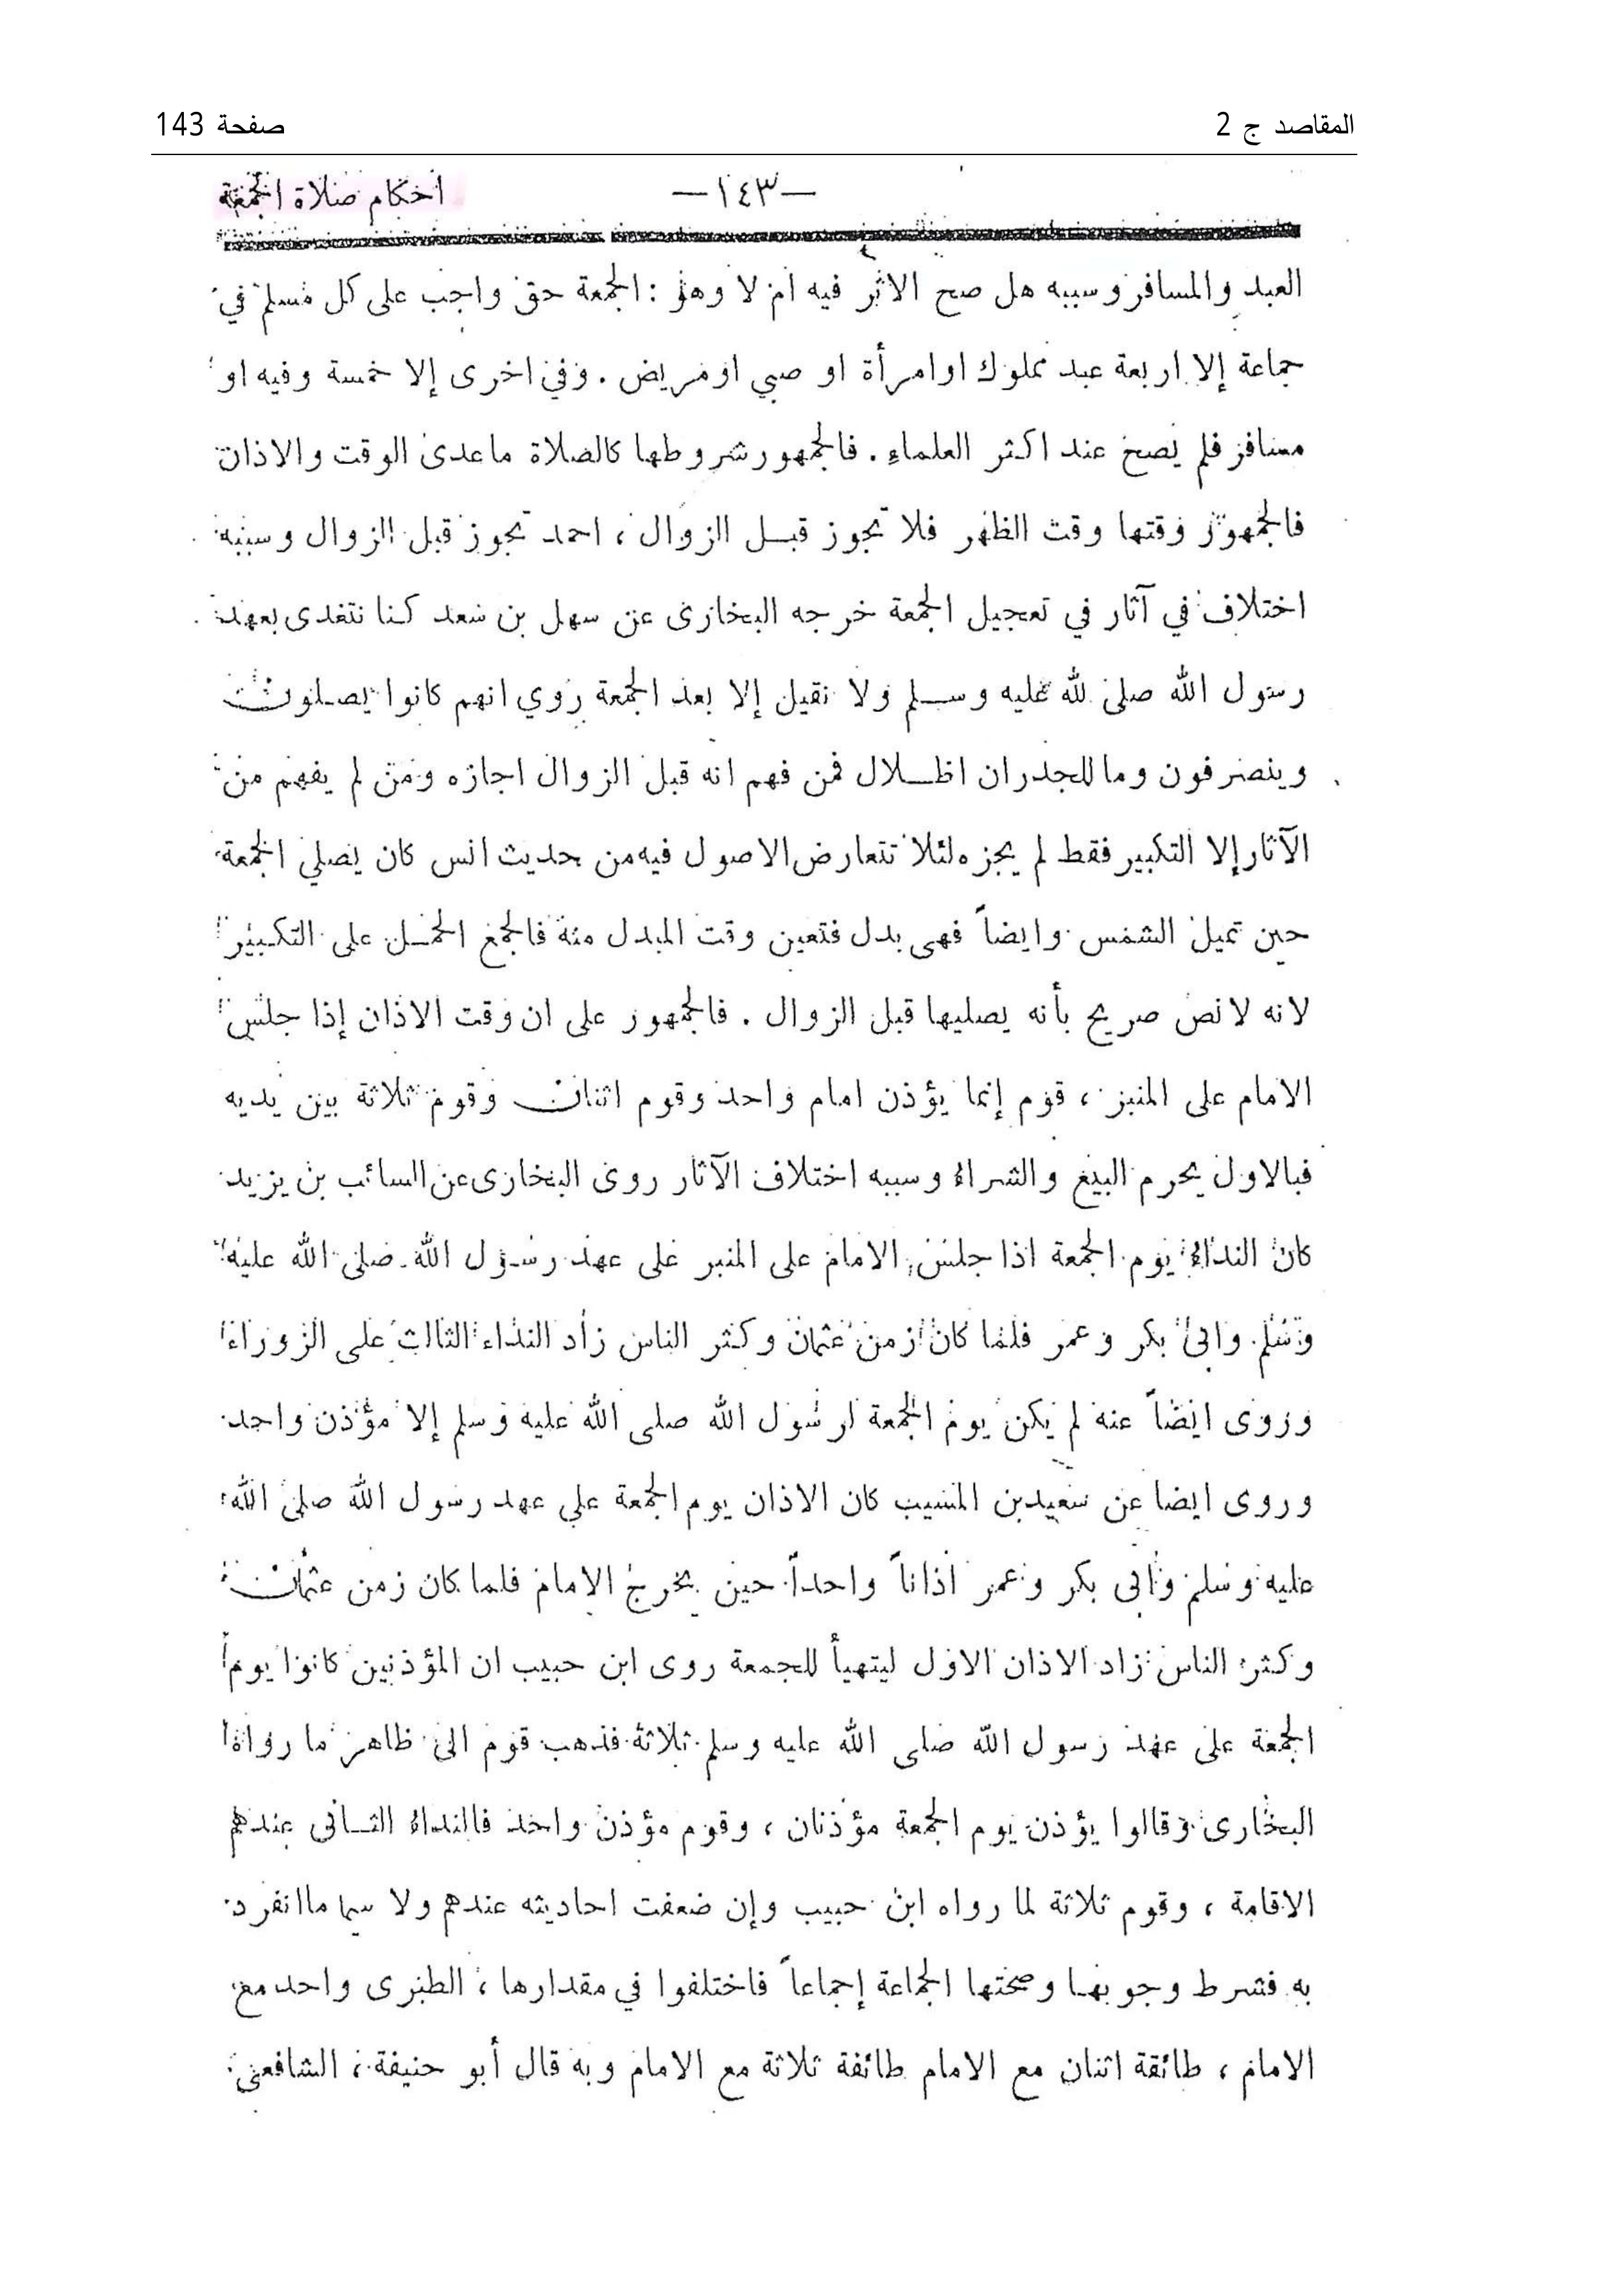 المقاصد ج 2
صفحة 143
—١٤٣—
احكام صلاة الجمعة
العبد والمسافر وسببه هل صح الاثر فيه ام لا وهو : الجمعة حق واجب على كل مسلم في
جماعة إلا اربعة عبد مملوك او امرأة او صبي او مريض . وفي اخرى إلا خمسة وفيه او
مسافر فلم يصح عند اكثر العلماء . فالجمهور شروطها كالصلاة ماعدى الوقت والاذان
فالجمهور وقتها وقت الظهر فلا تجوز قبل الزوال ، احمد تجوز قبل الزوال وسببه
اختلاف في آثار في تعجيل الجمعة خرجه البخارى عن سهل بن سعد كنا نتغدى بعهد
رسول الله صلى لله عليه وسلم ولا نقيل إلا بعد الجمعة روي انهم كانوا يصلون
وينصرفون وما للجدران اظلال فمن فهم انه قبل الزوال اجازه ومن لم يفهم من
الآثار إلا التكبير فقط لم يجزه لئلا تتعارض الاصول فيه من حديث انس كان يصلي الجمعة
حين تميل الشمس وايضاً فهى بدل فتعين وقت المبدل منه فالجمع الحمل على التكبير
لانه لانص صريح بأنه يصليها قبل الزوال . فالجمهور على ان وقت الاذان إذا جلس
الامام على المنبر ، قوم إنما يؤذن امام واحد وقوم اثنان وقوم ثلاثة بين يديه
فبالاول يحرم البيع والشراء وسببه اختلاف الآثار روى البخارى عن السائب بن يزيد
كان النداء يوم الجمعة اذا جلس الامام على المنبر على عهد رسول الله صلى الله عليه
وسلم وابى بكر وعمر فلما كان زمن عثمان وكثر الناس زاد النداء الثالث على الزوراء
وروى ايضاً عنه لم يكن يوم الجمعة لرسول الله صلى الله عليه وسلم إلا مؤذن واحد
وروى ايضا عن سعيد بن المسيب كان الاذان يوم الجمعة علي عهد رسول الله صلى الله
عليه وسلم وأبى بكر وعمر اذاناً واحداً حين يخرج الامام فلما كان زمن عثمان
وكثر الناس زاد الاذان الاول ليتهيأ للجمعة روى ابن حبيب ان المؤذنين كانوا يوم
الجمعة على عهد رسول الله صلى الله عليه وسلم ثلاثة فذهب قوم الى ظاهر ما رواه
البخارى وقالوا يؤذن يوم الجمعة مؤذنان ، وقوم مؤذن واحد فالنداء الثانى عندهم
الاقامة ، وقوم ثلاثة لما رواه ابن حبيب وإن ضعفت احاديثه عندهم ولا سيما ما انفرد
به فشرط وجوبها وصحتها الجماعة إجماعاً فاختلفوا في مقدارها ، الطبرى واحد مع
الامام ، طائفة اثنان مع الامام طائفة ثلاثة مع الامام وبه قال أبو حنيفة ، الشافعى